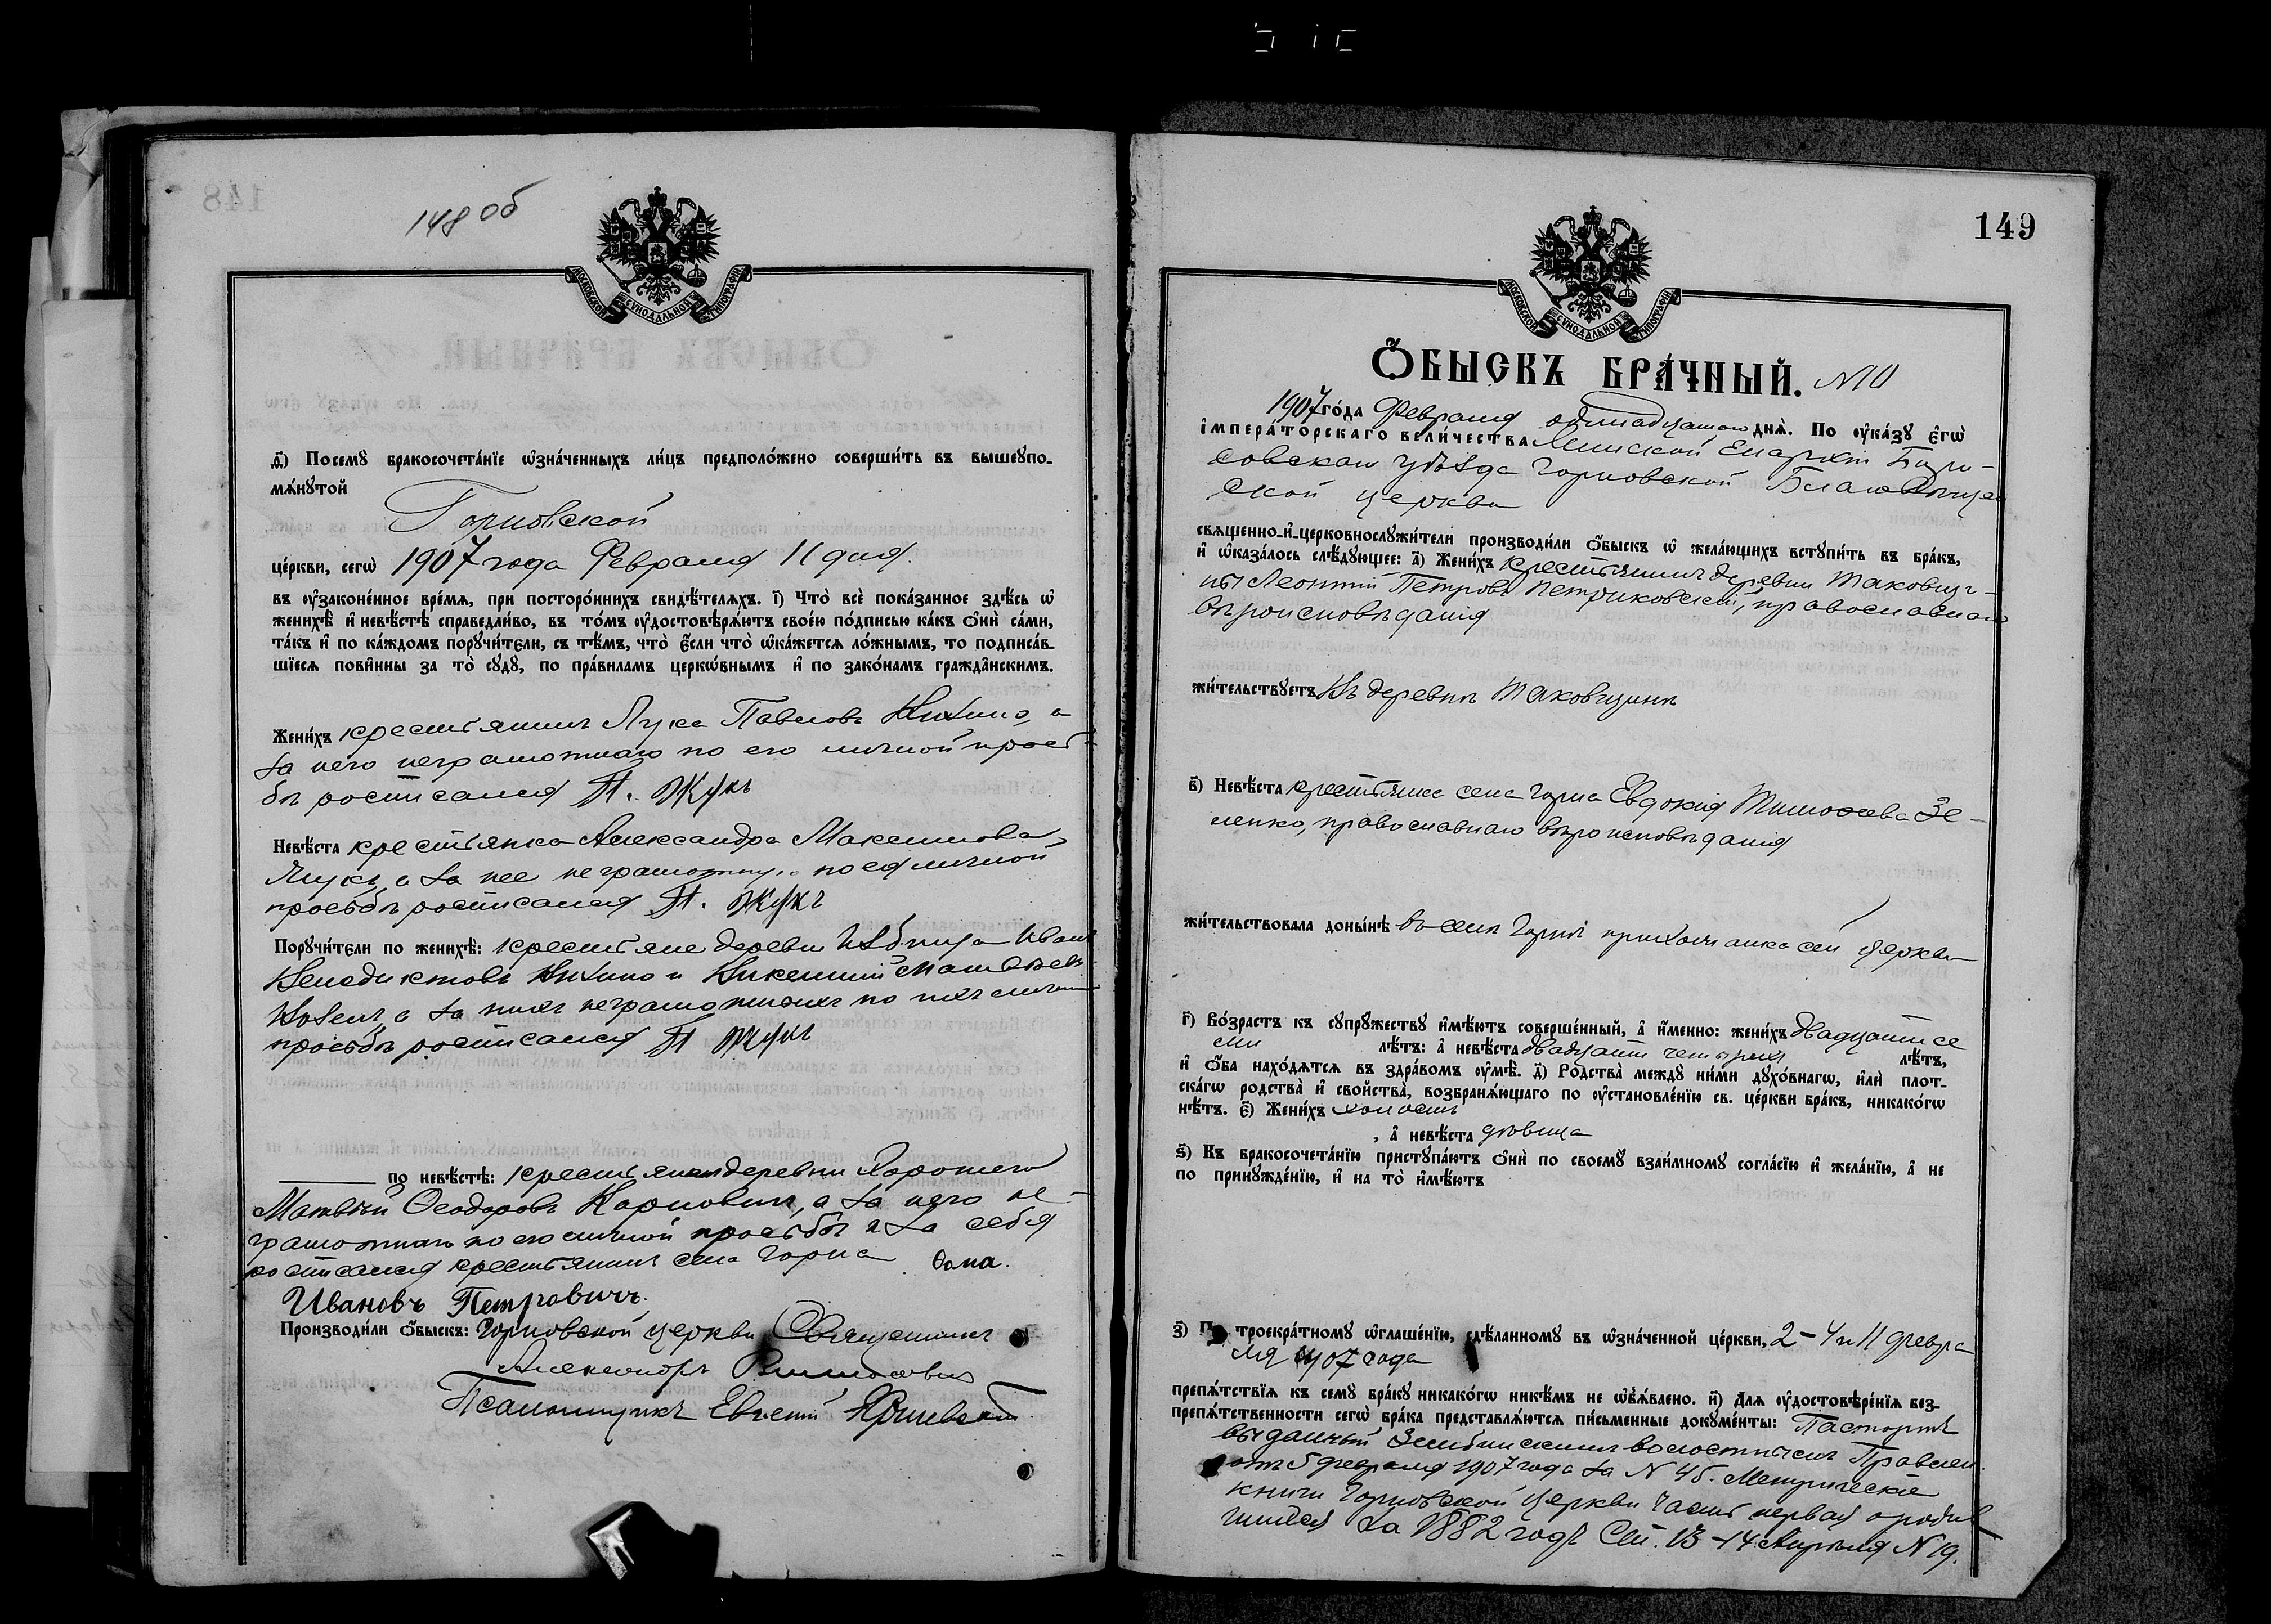 148 об
МОСКОВСКОЙ СѴНОДАЛЬНОЙ ТИПОГРАФІИ
д҃) Посемꙋ бракосочета́нїе ѡ҆зна́ченныхъ ли́цъ предполо́жено соверши́ть въ вышеꙋпо-
мѧ́нꙋтой
Горновской
це́ркви, сегѡ̀ 1907 года Февраля 11 дня.
въ ᲂу҆зако́ненное вре́мѧ, при посторо́ннихъ свидѣ́телѧхъ. і҃) Что̀ всѐ пока́занное здѣ́сь ѡ҆
женихѣ̀ и҆ невѣ́стѣ справедли́во, въ то́мъ ᲂу҆достовѣрѧ́ютъ свое́ю по́дписью ка́къ ѻ҆нѝ са́ми,
та́къ и҆ по ка́ждомъ порꙋчи́тели, съ тѣ́мъ, что̀ є҆́сли что̀ ѡ҆ка́жетсѧ ло́жнымъ, то подписа́в-
шїесѧ пови́нны за то̀ сꙋдꙋ̀, по пра́виламъ церкѡ́внымъ и҆ по зако́намъ гражда́нскимъ.
Жени́хъ крестьянинъ Лука Павловъ а
за него неграмотнаго по его личной прось-
бѣ росписался П. Жукъ
Невѣ́ста крестьянка Александра Максимова
а за нее неграмотную по ея личной
просьбѣ росписался П. Жукъ
Порꙋчи́тели по женихѣ̀: крестьяне деревни Иванъ
Венедиктовъ и Викентий Матвѣевъ
а за нихъ неграмотныхъ по ихъ личной
просьбѣ росписался П Жукъ
по невѣ́стѣ: крестьянинъ деревни Хорошего
Матвѣй Ѳеодоровъ Карповичъ, а за него не-
грамотнаго по его личной просьбѣ и за себя
росписался крестьянинъ села Горна
Ивановъ Петровичъ.
Производи́ли ѻ҆́быскъ: Горновской церкви Священникъ
Александръ
Псаломщикъ Евсений
149
МОСКОВСКОЙ СѴНОДАЛЬНОЙ ТИПОГРАФІИ
Ѻ҆́БЫСКЪ БРА́ЧНЫЙ. N10
1907 го́да Февраля одинадцатаго днѧ̀. По ᲂу҆ка́зꙋ є҆гѡ̀
і҆мпера́торскагѡ вели́чества Минской Епархіи Бори-
совскаго уѣзда Горновской Благовѣщен
ской церкви
свѧщенно-и҆-церковнослꙋжи́тели производи́ли ѻ҆́быскъ ѡ҆ жела́ющихъ встꙋпи́ть въ бра́къ,
и҆ ѡ҆каза́лось слѣ́дꙋющее: а҃) Жени́хъ крестьянинъ деревни Маковщи-
ны Леонтий Петровъ Петриковский, православнаго
вѣроисповѣданія
жи́тельствꙋетъ въ деревнѣ Маковщинѣ
в҃) Невѣ́ста крестьянка села Горна Евдокія Тимоѳеева Зе-
ленко, православнаго вѣроисповѣданія
жи́тельствовала доны́нѣ въ селѣ Горнѣ прихожанка сей церкви
г҃) Во́зрастъ къ сꙋпрꙋ́жествꙋ и҆мѣ́ютъ соверше́нный, а҆ и҆́менно: жени́хъ двадцати се
ми лѣ́тъ: а҆ невѣ́ста двадцати четырехъ лѣ́тъ,
и҆ ѻ҆́ба нахо́дѧтсѧ въ здра́вомъ ᲂу҆мѣ̀. д҃) Ро́дства междꙋ̀ ни́ми дꙋхо́внагѡ, и҆лѝ плот-
ска́гѡ родства̀ и҆ сво́йства, возбранѧ́ющаго по ᲂу҆становле́нїю св. це́ркви бра́къ, никако́гѡ
нѣ́тъ. є҃) Жени́хъ холостъ
, а҆ невѣ́ста дѣвица
ѕ҃) Къ бракосочета́нїю пристꙋпа́ютъ ѻ҆нѝ по своемꙋ̀ взаи́мномꙋ согла́сїю и҆ жела́нїю, а҆ не
по принꙋжде́нїю, и҆ на то̀ и҆мѣ́ютъ
з҃) По троекра́тномꙋ ѡ҆глаше́нїю, сдѣ́ланномꙋ въ ѡ҆зна́ченной це́ркви, 2-4 и 11 февра
ля 1907 года
препѧ́тствїѧ къ семꙋ̀ бра́кꙋ никако́гѡ никѣ́мъ не ѡ҆б̾ѧ́влено. и҃) Длѧ ᲂу҆достовѣре́нїѧ без-
препѧ́тственности сегѡ̀ бра́ка представлѧ́ютсѧ пи́сьменные докꙋме́нты: Паспортъ
выданный волостнымъ Правлен.
отъ 5 февраля 1907 года за N 45. Метрическіе
книги Горновской церкви часть первая о родив
шихся за 1882 годъ Ст. 13-14 Апрѣля N 19.